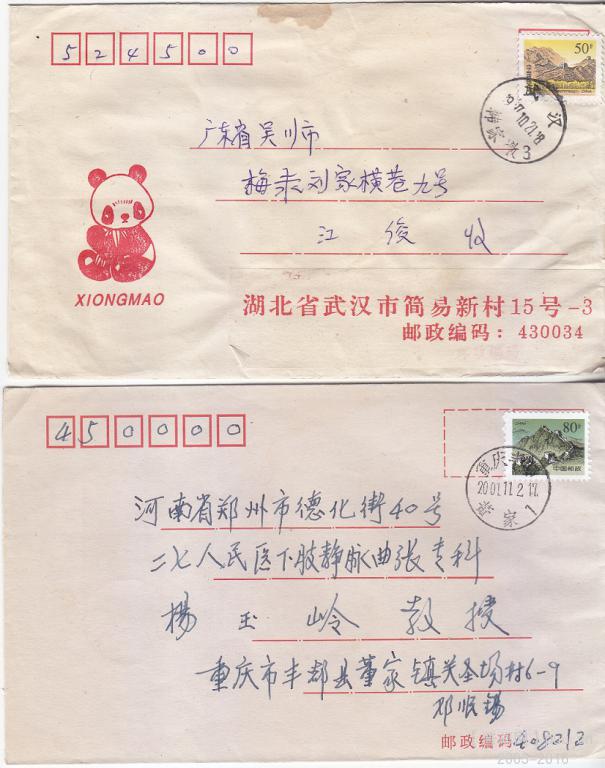 524500
50分
武汉
1997.10.21.18
3
广东省吴川市
梅菉刘家横巷九号
江俊收
XIONGMAO
湖北省武汉市简易新村15号-3
邮政编码：430034
450000
80分
中国邮政
重庆丰都
2001.11.2.17.
董家1
河南省郑州市德化街40号
二七人民医下肢静脉曲张专科
杨玉岭教授
重庆市丰都县董家镇关圣场村6-9
邓顺锡
邮政编码408212
2003-2016